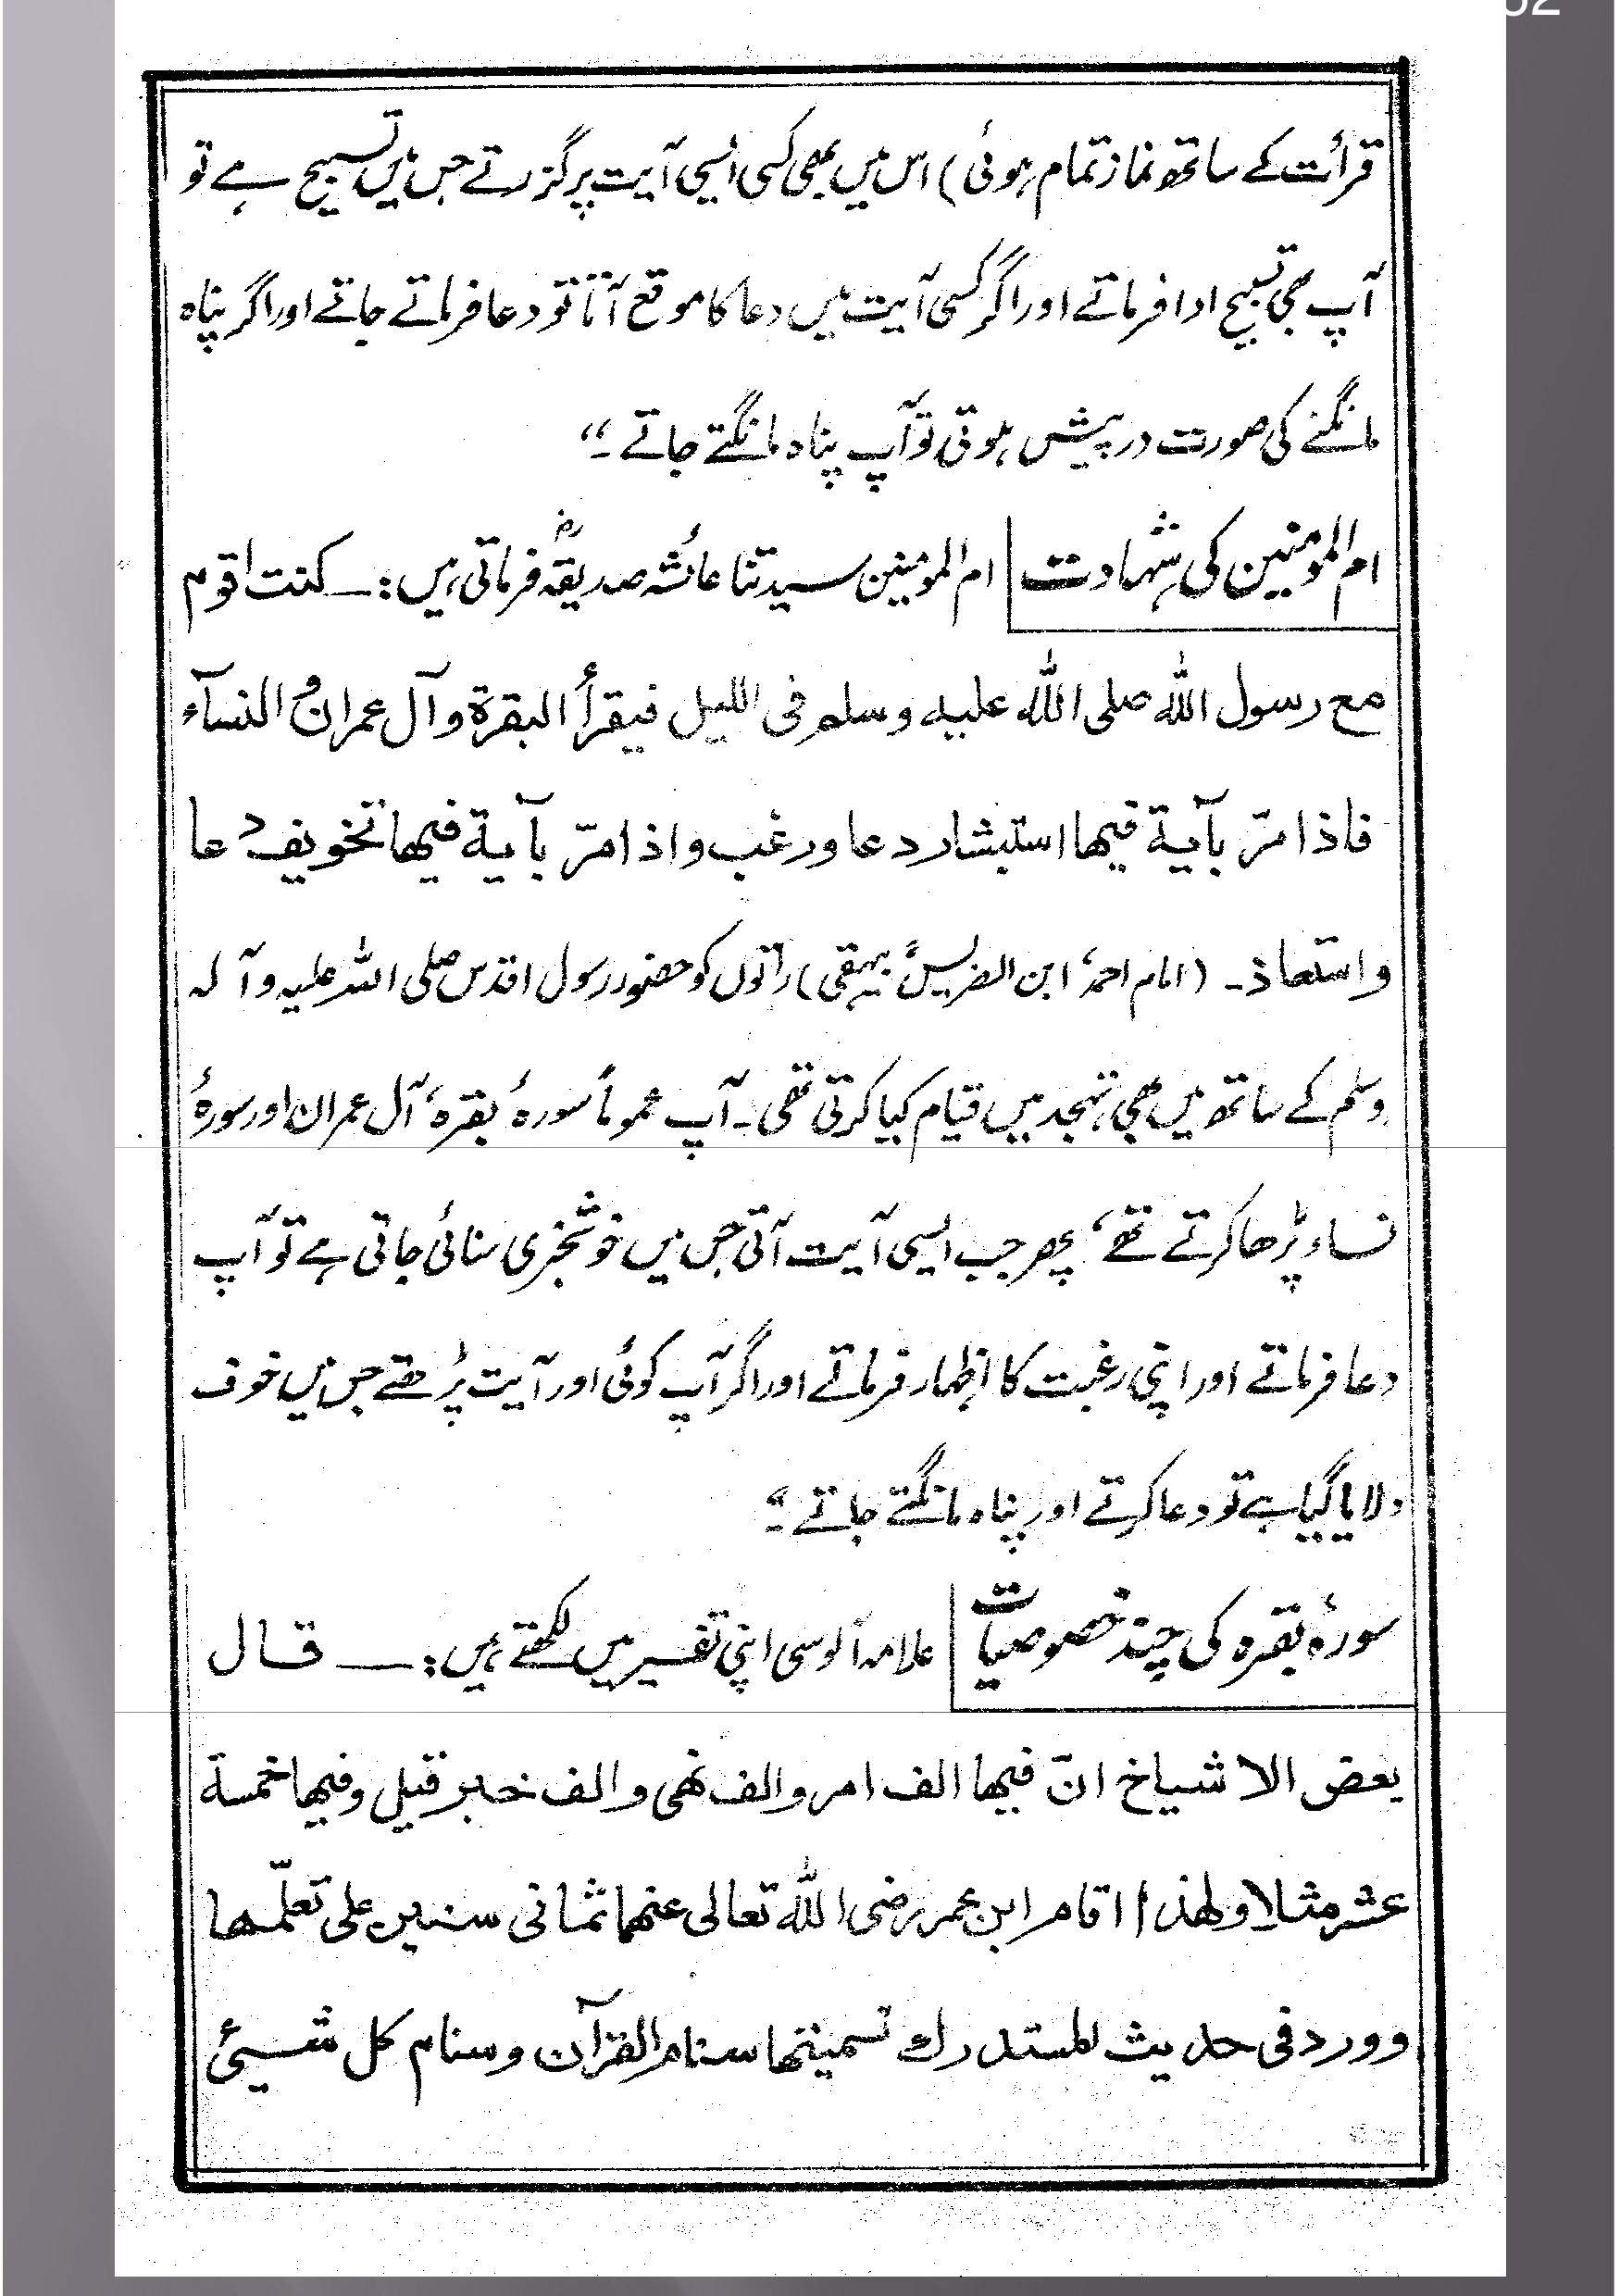 قرأت کے ساتھ نماز تمام ہوئی) اس میں بھی کسی ایسی آیت پر گزرتے جس میں تسبیح ہے تو
آپ بھی تسبیح ادا فرماتے اور اگر کسی آیت میں دعا کا موقع آتا تو دعا فرماتے جاتے اور اگر پناہ
مانگنے کی صورت درپیش ہوتی تو آپ پناہ مانگتے جاتے۔“
ام المومنین کی شہادت ام المومنین سیدتنا عائشہ صدیقہؓ فرماتی ہیں :— کنت اقوم
مع رسول اللہ صلی اللہ علیہ وسلم فی اللیل فیقرأ البقرة و آل عمران و النسآء
فاذا مرّ بآیة فیها استبشار دعا ورغب و اذا مرّ بآیة فیها تخویف دعا
و استعاذ۔ (امام احمد، ابن الضریس، بیہقی) راتوں کو حضور رسول اقدس صلی اللہ علیہ وآلہ
وسلم کے ساتھ میں بھی تہجد میں قیام کیا کرتی تھی۔ آپ عموماً سورۂ بقرہ، آل عمران اور سورۂ
نساء پڑھا کرتے تھے، پھر جب ایسی آیت آتی جس میں خوشخبری سنائی جاتی ہے تو آپ
دعا فرماتے اور اپنی رغبت کا اظہار فرماتے اور اگر آپ کوئی اور آیت پڑھتے جس میں خوف
دلایا گیا ہے تو دعا کرتے اور پناہ مانگتے جاتے۔“
سورۂ بقرہ کی چند خصوصیات علامہ آلوسی اپنی تفسیر میں لکھتے ہیں :— قال
بعض الاشیاخ انّ فیها الف امر و الف نهی و الف خبر قیل و فیها خمسة
عشر مثلا و لهذا اقام ابن عمر رضی اللہ تعالی عنهما ثمانی سنین علی تعلّمها
و ورد فی حدیث المستدرك تسمیتها سنام القرآن و سنام کل شیئ